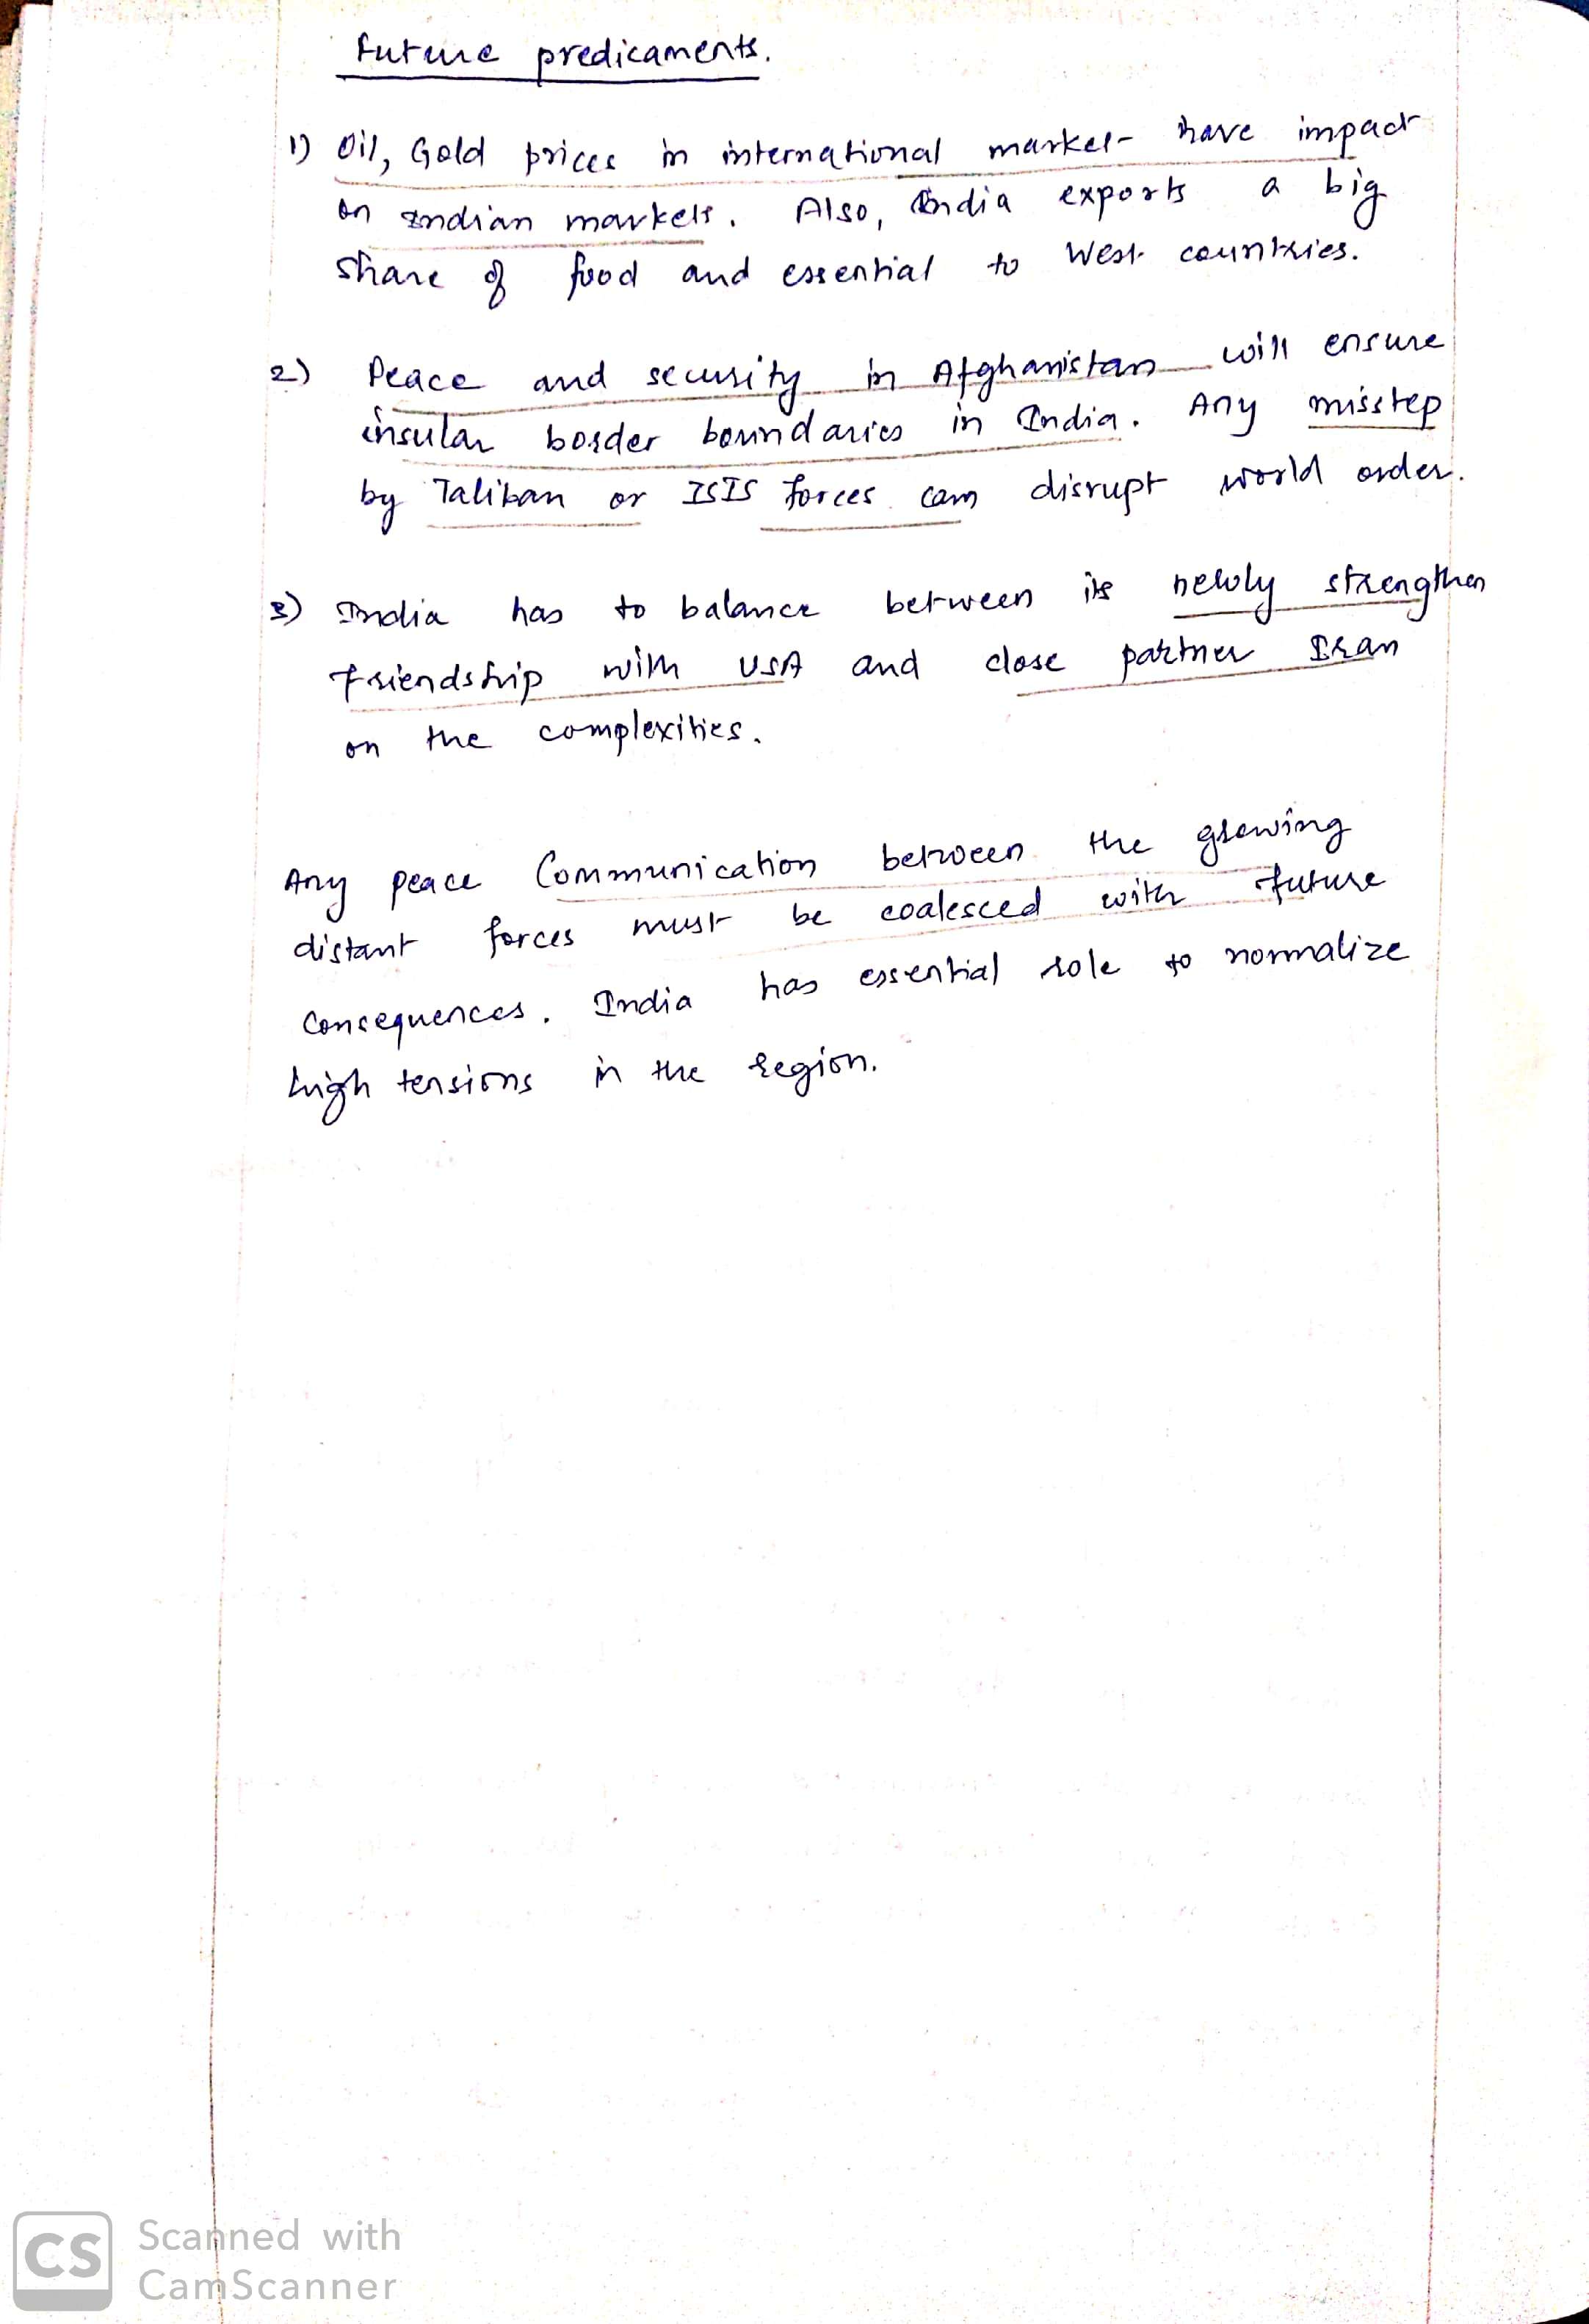 Future predicaments.
1) Oil, Gold prices in international market have impact
on Indian markets. Also, India exports a big
share of food and essential to West countries.
2) Peace and security in Afghanistan will ensure
insular border boundaries in India. Any misstep
by Taliban or ISIS forces can disrupt world order.
3) India has to balance between its newly strengthen
friendship with USA and close partner Iran
on the complexities.
Any peace Communication between the growing
distant forces must be coalesced with future
consequences. India has essential role to normalize
high tensions in the region.
CS Scanned with
CamScanner